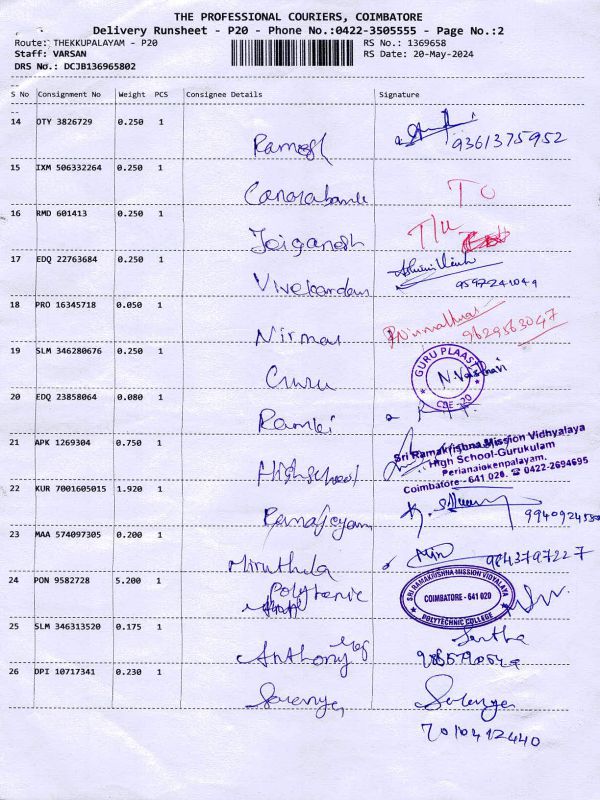 THE PROFESSIONAL COURIERS, COIMBATORE
Delivery Runsheet - P20 - Phone No.:0422-3505555 - Page No.:2
Route: THEKKUPALAYAM - P20 RS No.: 1369658
Staff: VARSAN RS Date: 20-May-2024
DRS No.: DCJB136965802
S No Consignment No Weight PCS Consignee Details Signature
14 OTY 3826729 0.250 1
Ramesh 9361375952
15 IXM 506332264 0.250 1
Canarabank TO
16 RMD 601413 0.250 1
Jaiganesh T/U
17 EDQ 22763684 0.250 1
9597241049
18 PRO 16345718 0.050 1
Nirmal 9629563047
19 SLM 346280676 0.250 1
Guru GURU PLAAST N. Vaishnavi CBE - 20
20 EDQ 23858064 0.080 1
Ramki
21 APK 1269304 0.750 1
Highschool Sri Ramakrishna Mission Vidhyalaya
High School-Gurukulam
Perianaickenpalayam.
Coimbatore - 641 020. ☎ 0422-2694695
22 KUR 7001605015 1.920 1
Ramajeyam
23 MAA 574097305 0.200 1
Miruthula 9843797227
24 PON 9582728 5.200 1
Polytechnic SRI RAMAKRISHNA MISSION VIDYALAYA COIMBATORE - 641 020 POLYTECHNIC COLLEGE
25 SLM 346313520 0.175 1
Anthony
26 DPI 10717341 0.230 1
Saranya Saranya
7010412440